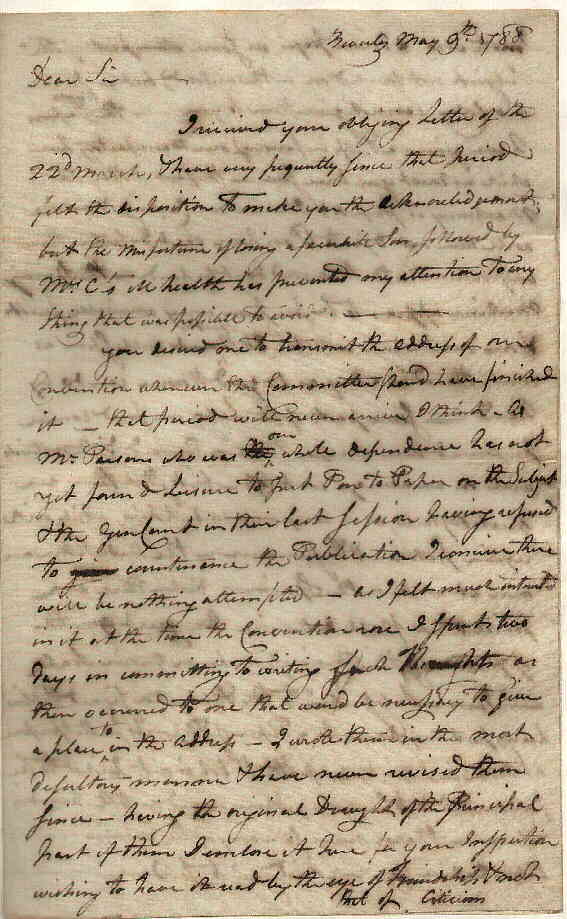 Beverly May 9th 1788
Dear Sir
I received your obliging Letter of the
22d March, & have very frequently since that Period
felt the disposition to make you the acknowledgement;
but the misfortune of losing a favourite Son, followed by
Mrs C's ill health has prevented my attention to any
thing that was possible to avoid. —
you desired me to transmit the address of our
Convention whenever the Committee should have finished
it — that period will never arrive I think — as
Mr Parsons who was our whole dependence has not
yet found Leisure to put Pen to Paper on the Subject
& the Genl Court in their last Session having refused
to countenance the Publication I conceive there
will be nothing attempted — as I felt much interested
in it at the time the Convention rose I spent two
days in committing to writing such Thoughts as
then occurred to me that would be necessary to give
a place to in the Address — I wrote them in the most
desultory manner & have never revised them
since — having the original Draught of the Principal
part of them I enclose it here for your Inspection
wishing to have it read by the eye of Friendship & not
that of Criticism